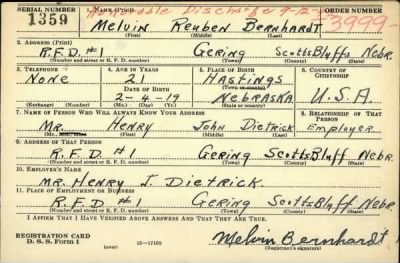 SERIAL NUMBER 1. NAME (Print) Honorable Discharge 9-12- ORDER NUMBER
1359 Melvin Reuben Bernhardt 3999
(First) (Middle) (Last)
2. ADDRESS (Print)
R.F.D. #1 Gering ScottsBluffs Nebr.
(Number and street or R. F. D. number) (Town) (County) (State)
3. TELEPHONE 4. AGE IN YEARS 5. PLACE OF BIRTH 6. COUNTRY OF CITIZENSHIP
None 21 Hastings
DATE OF BIRTH (Town or county)
2-4-19 Nebraska U.S.A.
(Exchange) (Number) (Mo.) (Day) (Yr.) (State or country)
7. NAME OF PERSON WHO WILL ALWAYS KNOW YOUR ADDRESS 8. RELATIONSHIP OF THAT PERSON
Mr. Henry John Dietrick Employer
(First) (Middle) (Last)
9. ADDRESS OF THAT PERSON
R.F.D. #1 Gering ScottsBluff Nebr.
(Number and street or R. F. D. number) (Town) (County) (State)
10. EMPLOYER'S NAME
Mr. Henry J. Dietrick.
11. PLACE OF EMPLOYMENT OR BUSINESS
R.F.D. #1 Gering ScottsBluff Nebr.
(Number and street or R. F. D. number) (Town) (County) (State)
I AFFIRM THAT I HAVE VERIFIED ABOVE ANSWERS AND THAT THEY ARE TRUE.
REGISTRATION CARD
D. S. S. FORM 1 (over) 16-17105 Melvin Bernhardt
(Registrant's signature)